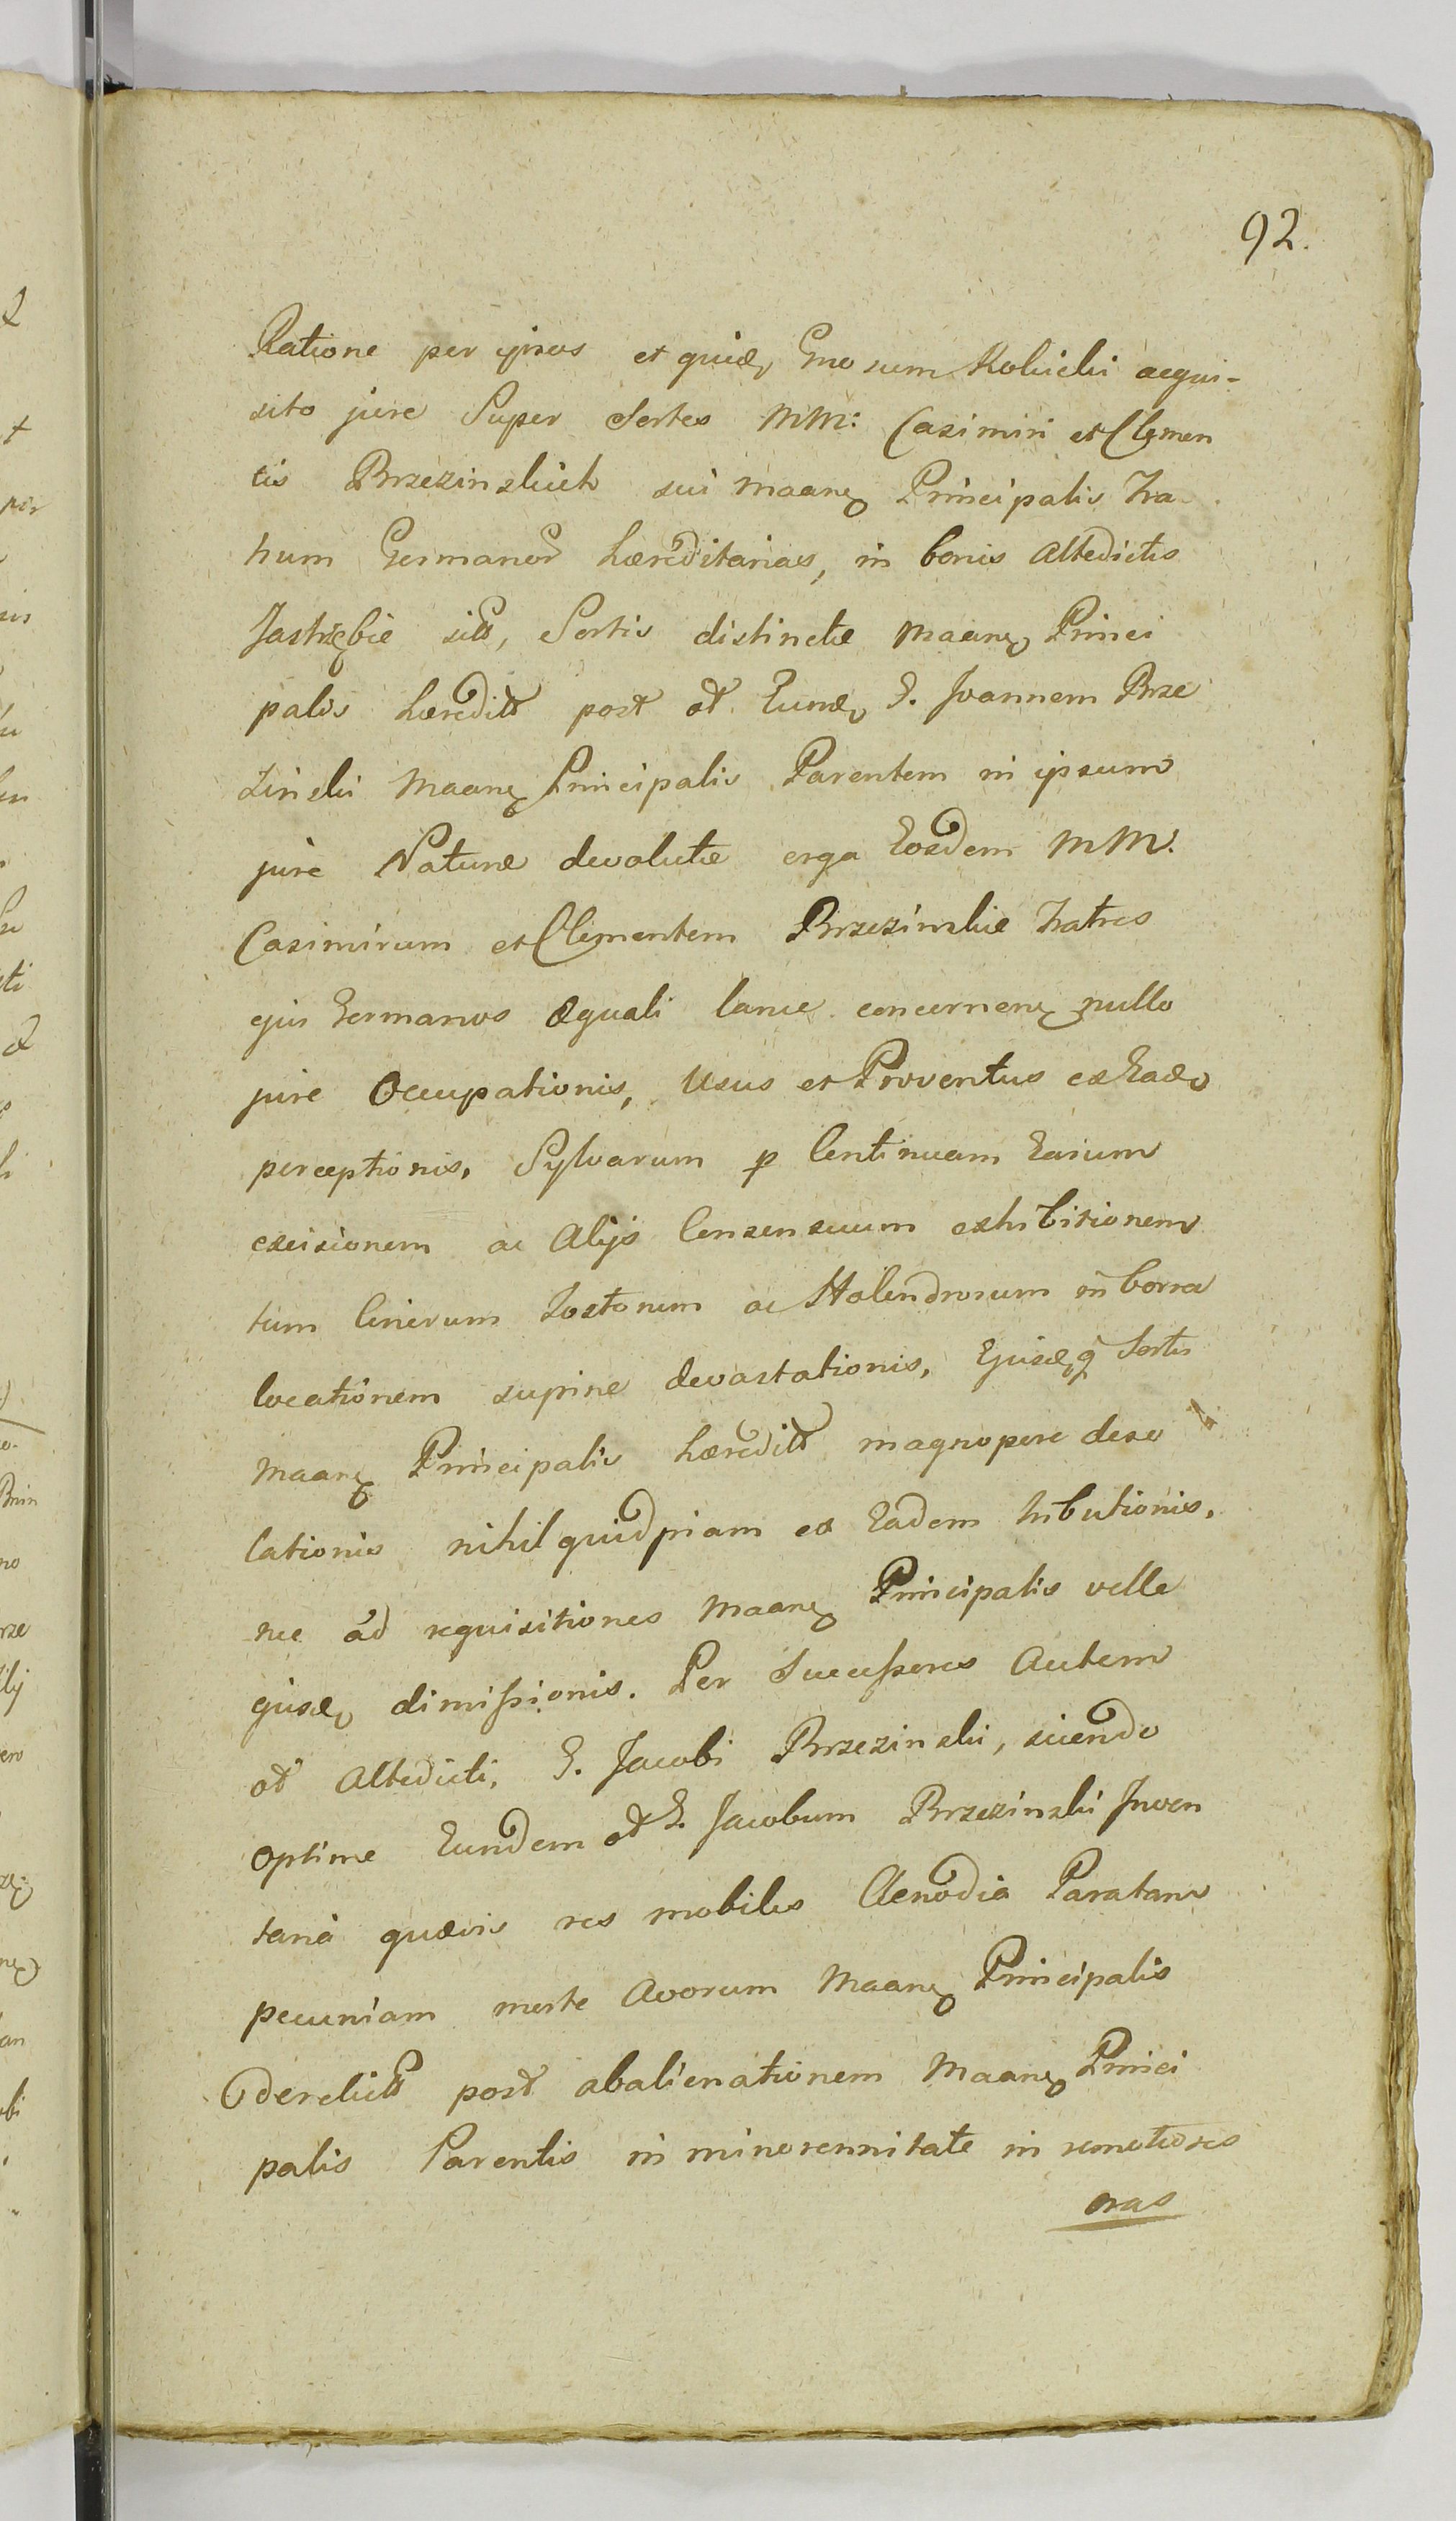 92.
Ratione per ipsos et quidē Gnosum Kobielski acqui-
sito jure Super Sortes MM: Casimiri et Clemen
tis Brzezinskich sui Maanē Principalis Fra
trum Germanor hæreditarias, in bonis Altedictis
Jastrzębie sitt, Sortis distinctæ Maanē Princi
palis hæreditt post ot Eundē G. Joannem Brze
zinski Maanē Principalis Parentem in ipsum
jure Naturæ devolutæ erga Eosdem MM.
Casimirum et Clementem Brzezinskie Fratres
ejus Germanos æquali lance concernenē nullo
jure Occupationis, Usus et Proventus ex Eadē
perceptionis, Sylvarum p Continuam Earum
excisionem ac Alijs Consensuum exhibitionem
tum Cinerum Tostorum ac Holendrorum in borra
locationem supine devastationis, Ejusdēq Sortis
Maanē Principalis hæreditt magnopere deso
lationis nihil quidpiam ex Eadem tributionis,
nec ad requisitiones Maanē Principalis velle
ejusdē dimissionis. Per Successores Autem
ot Altedicti, G. Jacobi Brzezinski, sciendo
optime Eundem ot G. Jacobum Brzezinski Inven
taria quævis res mobiles Clenodia Paratam
pecuniam morte Avorum Maanē Principalis
derelictt post abalienationem Maanē Princi
palis Parentis in minorennitate in remotiores
oras